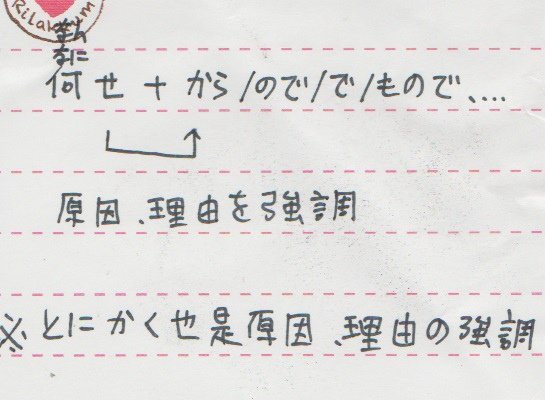 Rilakkuma
なに
何せ + から/ので/で/もので、....
原因、理由を強調
※とにかく也是原因、理由の強調